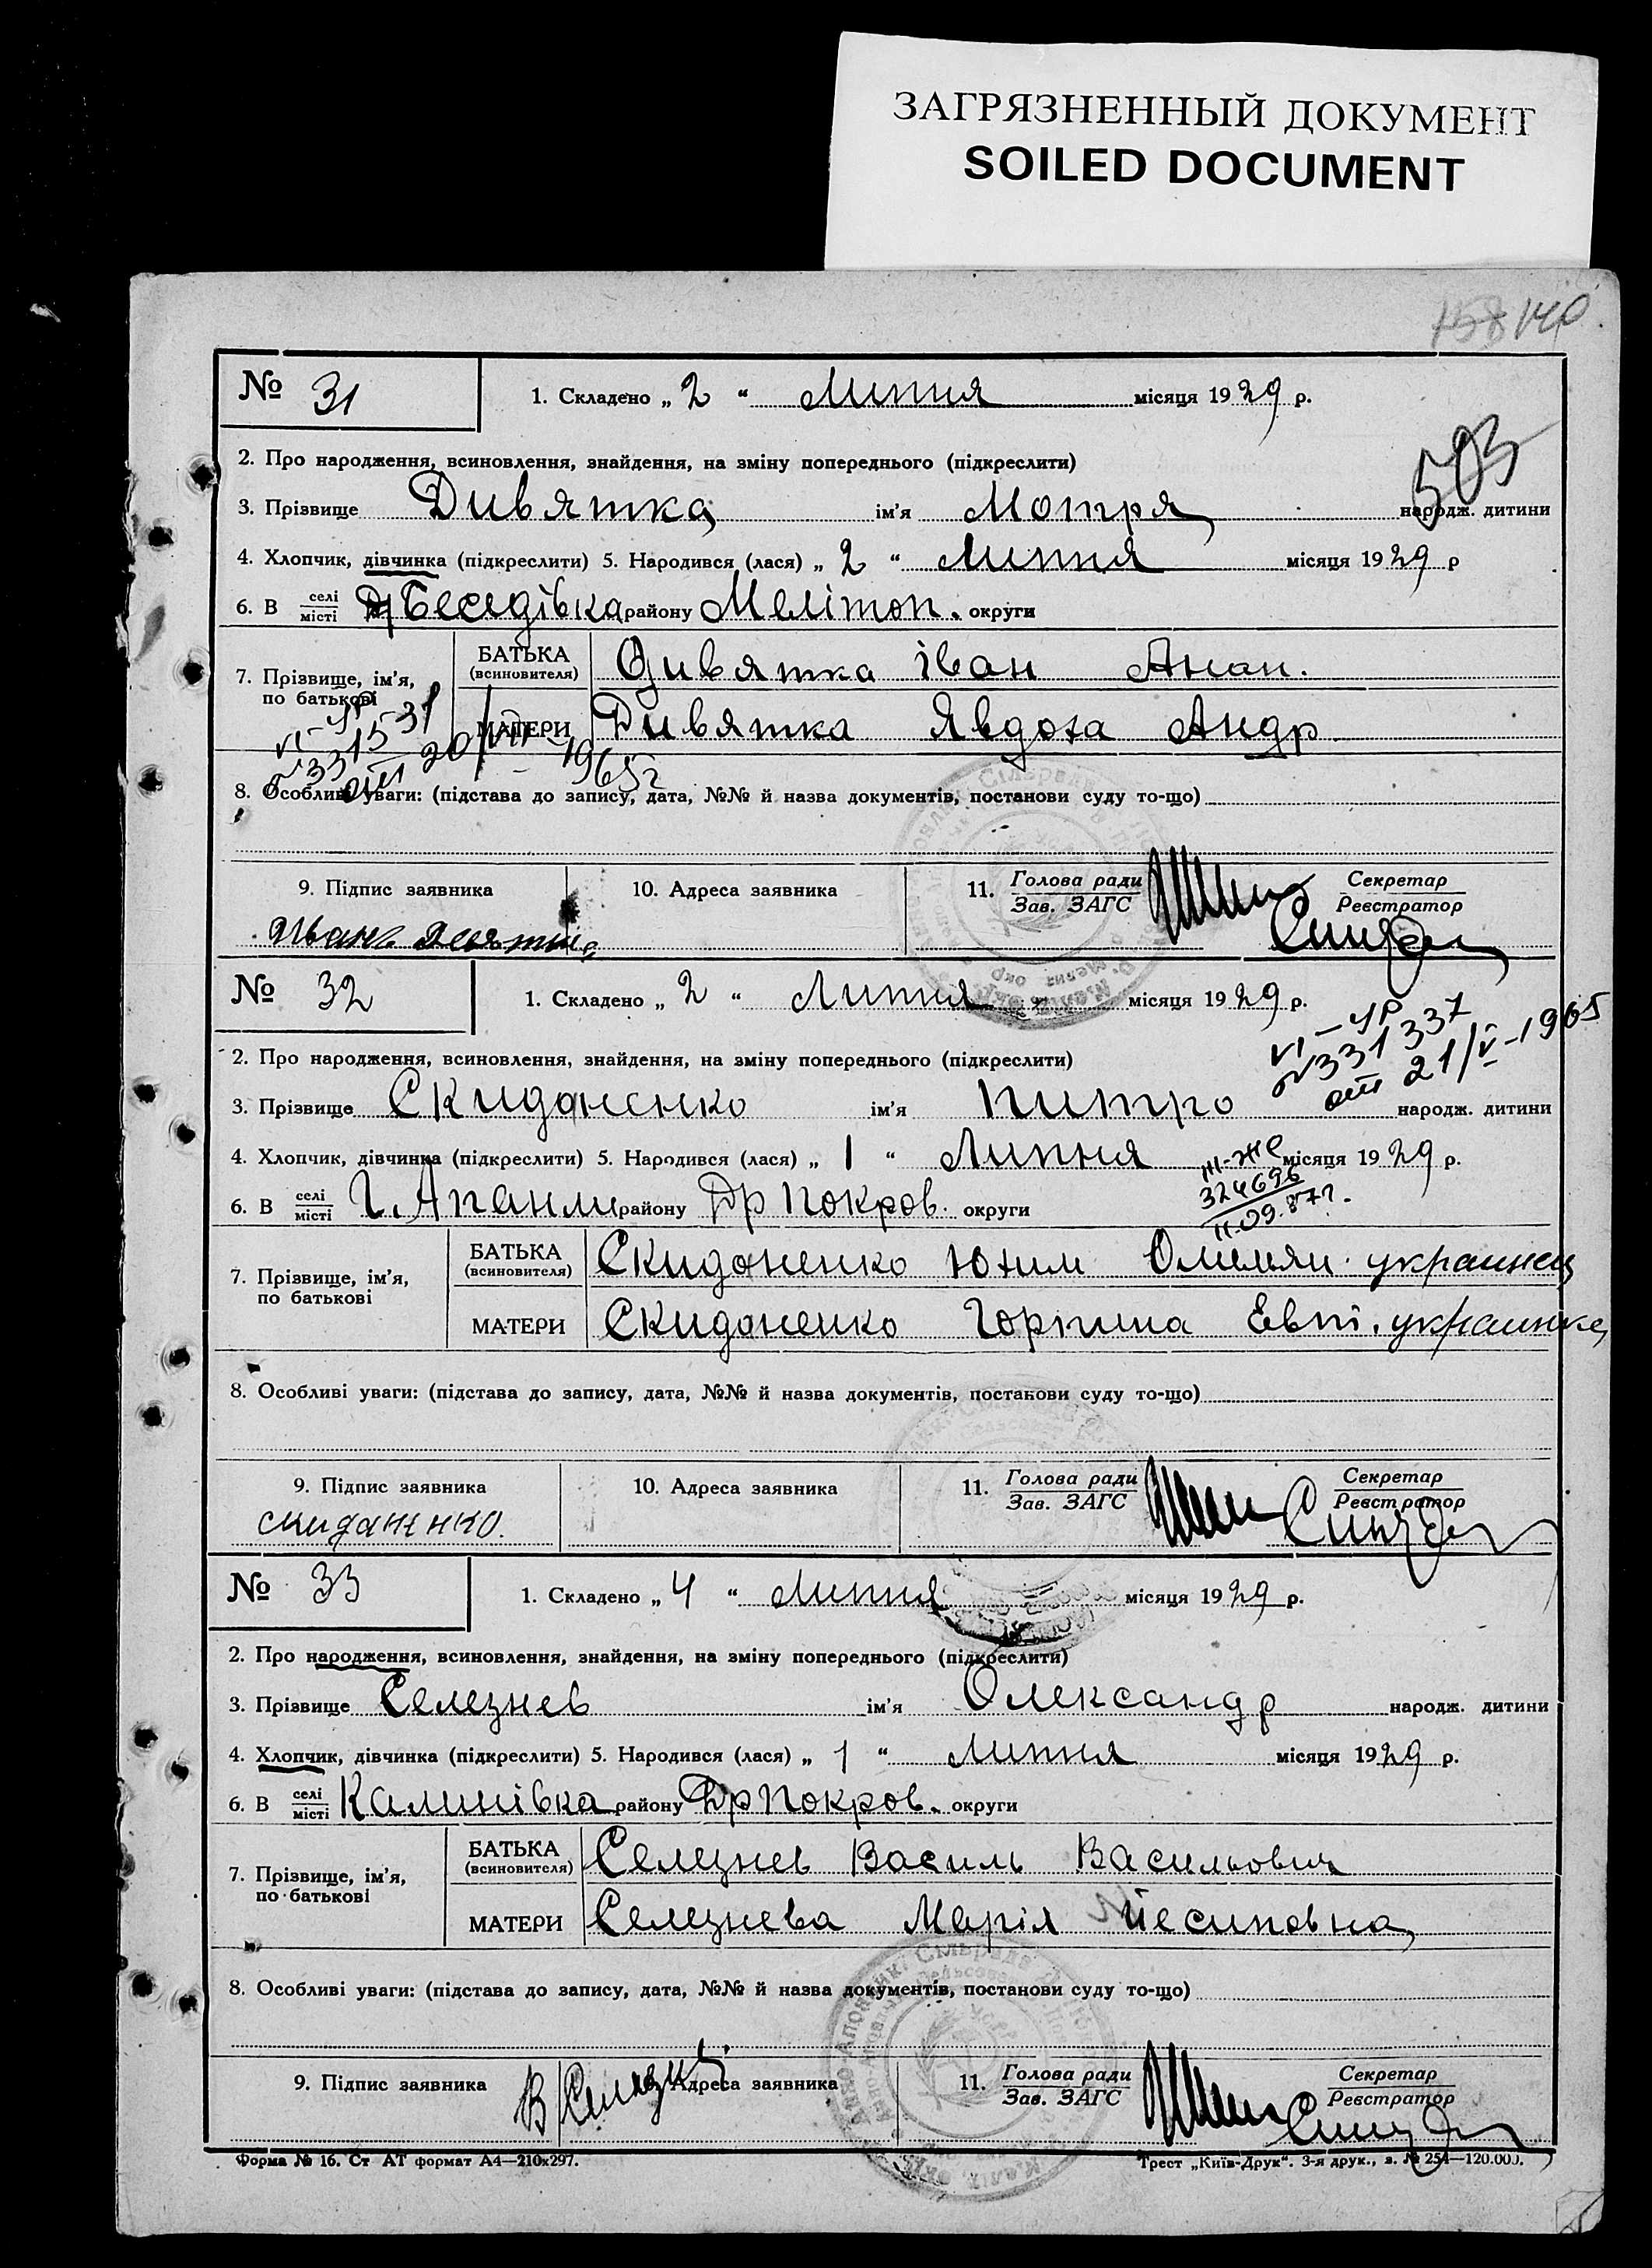 ЗАГРЯЗНЕННЫЙ ДОКУМЕНТ
SOILED DOCUMENT
158 140
№ 31 1. Складено „ 2 “ Липня місяця 1929 р.
2. Про народження, всиновлення, знайдення, на зміну попереднього (підкреслити)
503
3. Прізвище Дивятка ім'я Мотря народж. дитини
4. Хлопчик, дівчинка (підкреслити) 5. Народився (лася) „ 2 “ Липня місяця 1929 р
6. В селі місті Беседівка району Мелітоп. округи
7. Прізвище, ім'я, по батькові
БАТЬКА (всиновителя) Дивятка Іван Анан.
МАТЕРИ Дивятка Явдоха Андр
VI-УР
№ 331531
от 20/VII-1965г
8. Особливі уваги: (підстава до запису, дата, №№ й назва документів, постанови суду то-що)
9. Підпис заявника 10. Адреса заявника 11. Голова ради Зав. ЗАГС Секретар Реєстратор
№ 32 1. Складено „ 2 “ Липня місяця 1929 р.
VI-УР
№ 331337
от 21/V-1965
2. Про народження, всиновлення, знайдення, на зміну попереднього (підкреслити)
3. Прізвище Скиданенко ім'я Питро народж. дитини
4. Хлопчик, дівчинка (підкреслити) 5. Народився (лася) „ 1 “ Липня місяця 1929 р.
III-ЖС
324696
11.09.87г.
6. В селі місті району Др Покров. округи
7. Прізвище, ім'я, по батькові
БАТЬКА (всиновителя) Скиданенко Юхим Омелян. украинец
МАТЕРИ Скиданенко Горпина Евт. украинка
8. Особливі уваги: (підстава до запису, дата, №№ й назва документів, постанови суду то-що)
9. Підпис заявника 10. Адреса заявника 11. Голова ради Зав. ЗАГС Секретар Реєстратор
Скиданенко.
№ 33 1. Складено „ 4 “ Липня місяця 1929 р.
2. Про народження, всиновлення, знайдення, на зміну попереднього (підкреслити)
3. Прізвище Селезнев ім'я Олександр народж. дитини
4. Хлопчик, дівчинка (підкреслити) 5. Народився (лася) „ 1 “ Липня місяця 1929 р.
6. В селі місті Калинівка району Др Покров. округи
7. Прізвище, ім'я, по батькові
БАТЬКА (всиновителя) Селезнев Василь Васильович
МАТЕРИ Селезнева Марія Йесиповна
8. Особливі уваги: (підстава до запису, дата, №№ й назва документів, постанови суду то-що)
9. Підпис заявника 10. Адреса заявника 11. Голова ради Зав. ЗАГС Секретар Реєстратор
Форма № 16. Ст АТ формат А4—210х297. Трест „Київ-Друк“. 3-я друк., з. № 254—120.000.